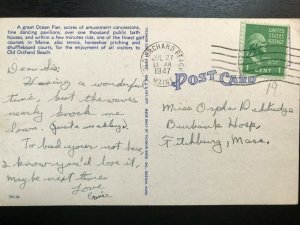 A great Ocean Pier, scores of amusement concessions,
fine dancing pavilions, over one thousand public bath
houses, and within a few minutes ride, one of the finest golf
courses in Maine, also tennis, horseshoe pitching and
shuffleboard courts, for the enjoyment of all visitors to
Old Orchard Beach.
Dear Sis,
Having a wonderful
time, but the waves
nearly knock me
down. Just a weakling.
To bad your not here
I know you'd love it,
maybe next time.
Love,
OLD ORCHARD BEACH
JUL 21
AM
1947
MAINE
1 CENT 1
POST CARD
19
Miss Orpha Dickridge
Burbank Hosp.
Fitchburg,
Mass.